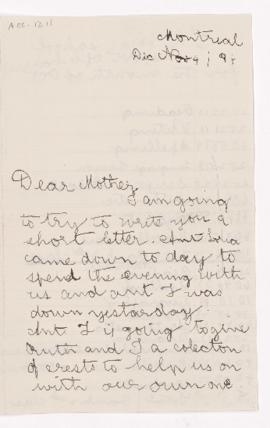 ACC. 1211
Montreal
Dic Nov 4 / 9
Dear Mother,
I am going
to try to write you a
short letter. Ant
came down to day to
spend the evening with
us and ant F was
down yestarday
Ant F is going to give
and I a colection
of crests to help us on
with our own one